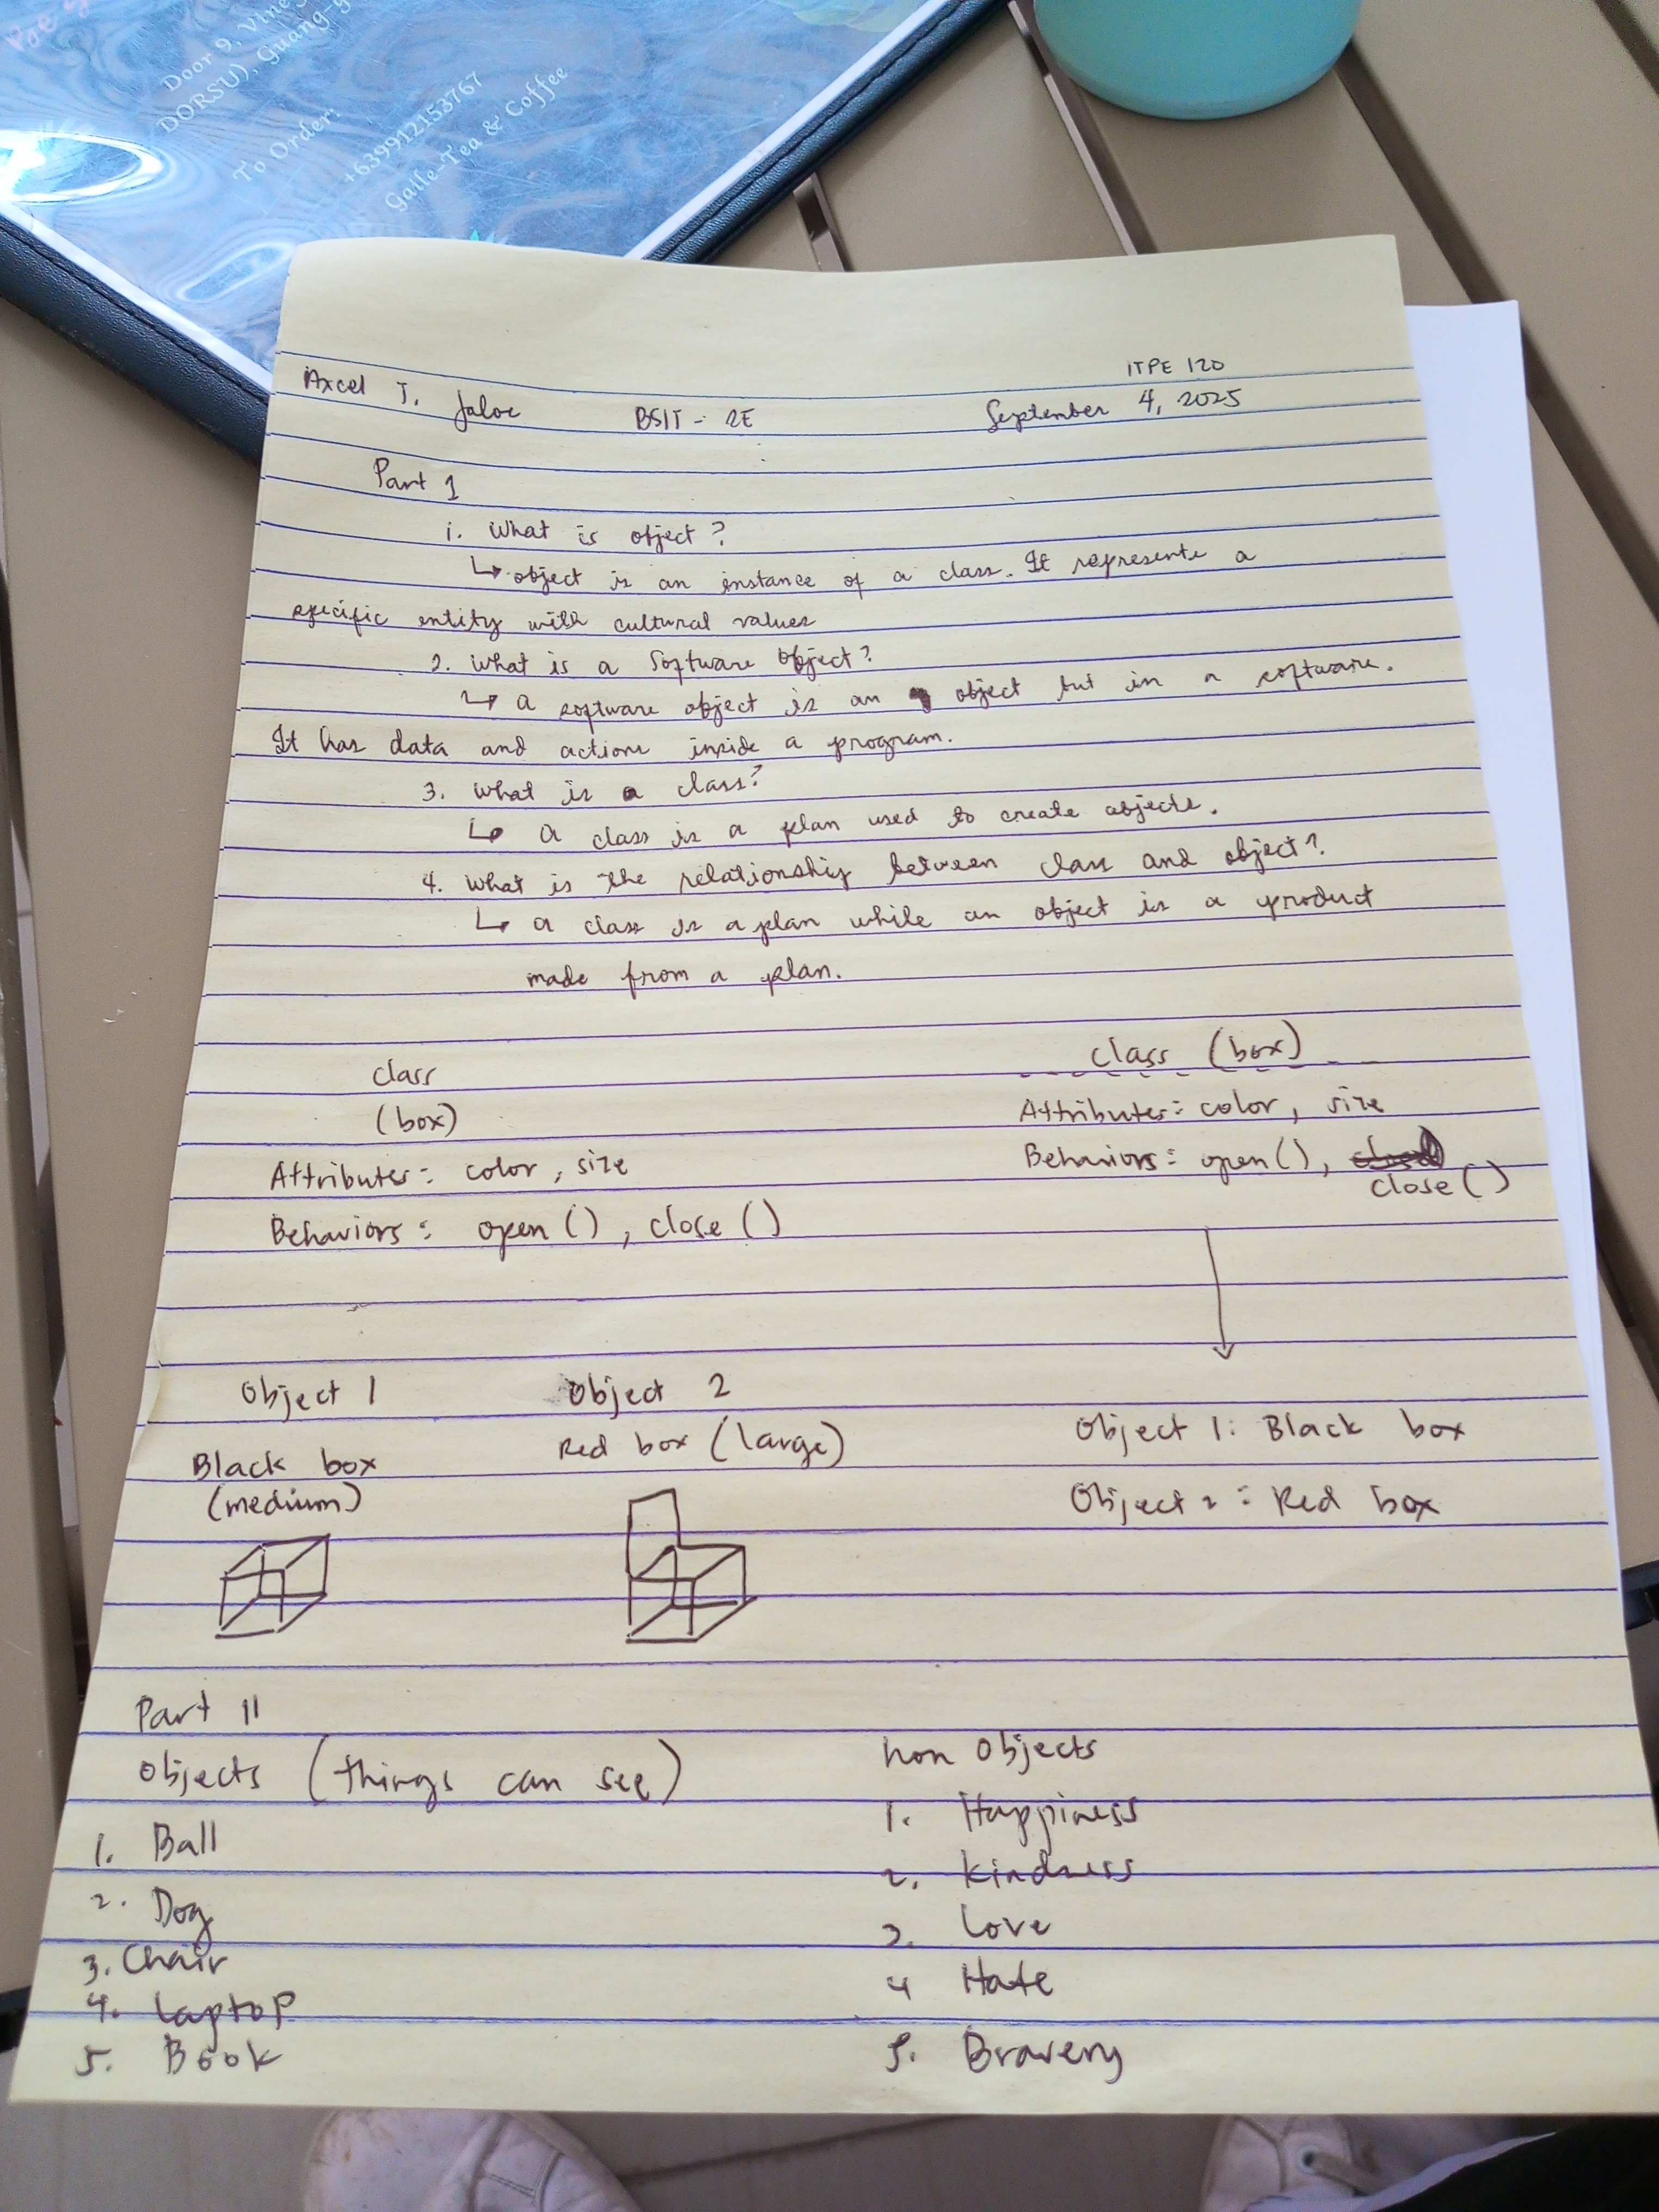 Door 9, Vine
DORSU), Guang-g
To Order:
+639912153767
Gaile-Tea & Coffee
ITPE 120
Axcel J. Jaloc BSIT - 2E September 4, 2025
Part 1
1. What is object?
↳ object is an instance of a class. It represents a
specific entity with cultural values
2. What is a Software Object?
↳ a software object is an object but in a software.
It has data and actions inside a program.
3. What is a class?
↳ A class is a plan used to create objects.
4. What is the relationship between class and object?
↳ a class is a plan while an object is a product
made from a plan.
class
(box)
Attributes: color, size
Behaviors: open(), close()
Object 1 Object 2
Black box Red box (large)
(medium)
class (box)
Attributes: color, size
Behaviors: open(),
close()
Object 1: Black box
Object 2: Red box
Part II
Objects (things can see)
1. Ball
2. Dog
3. Chair
4. Laptop
5. Book
non Objects
1. Happiness
2. kindness
3. Love
4 Hate
5. Bravery